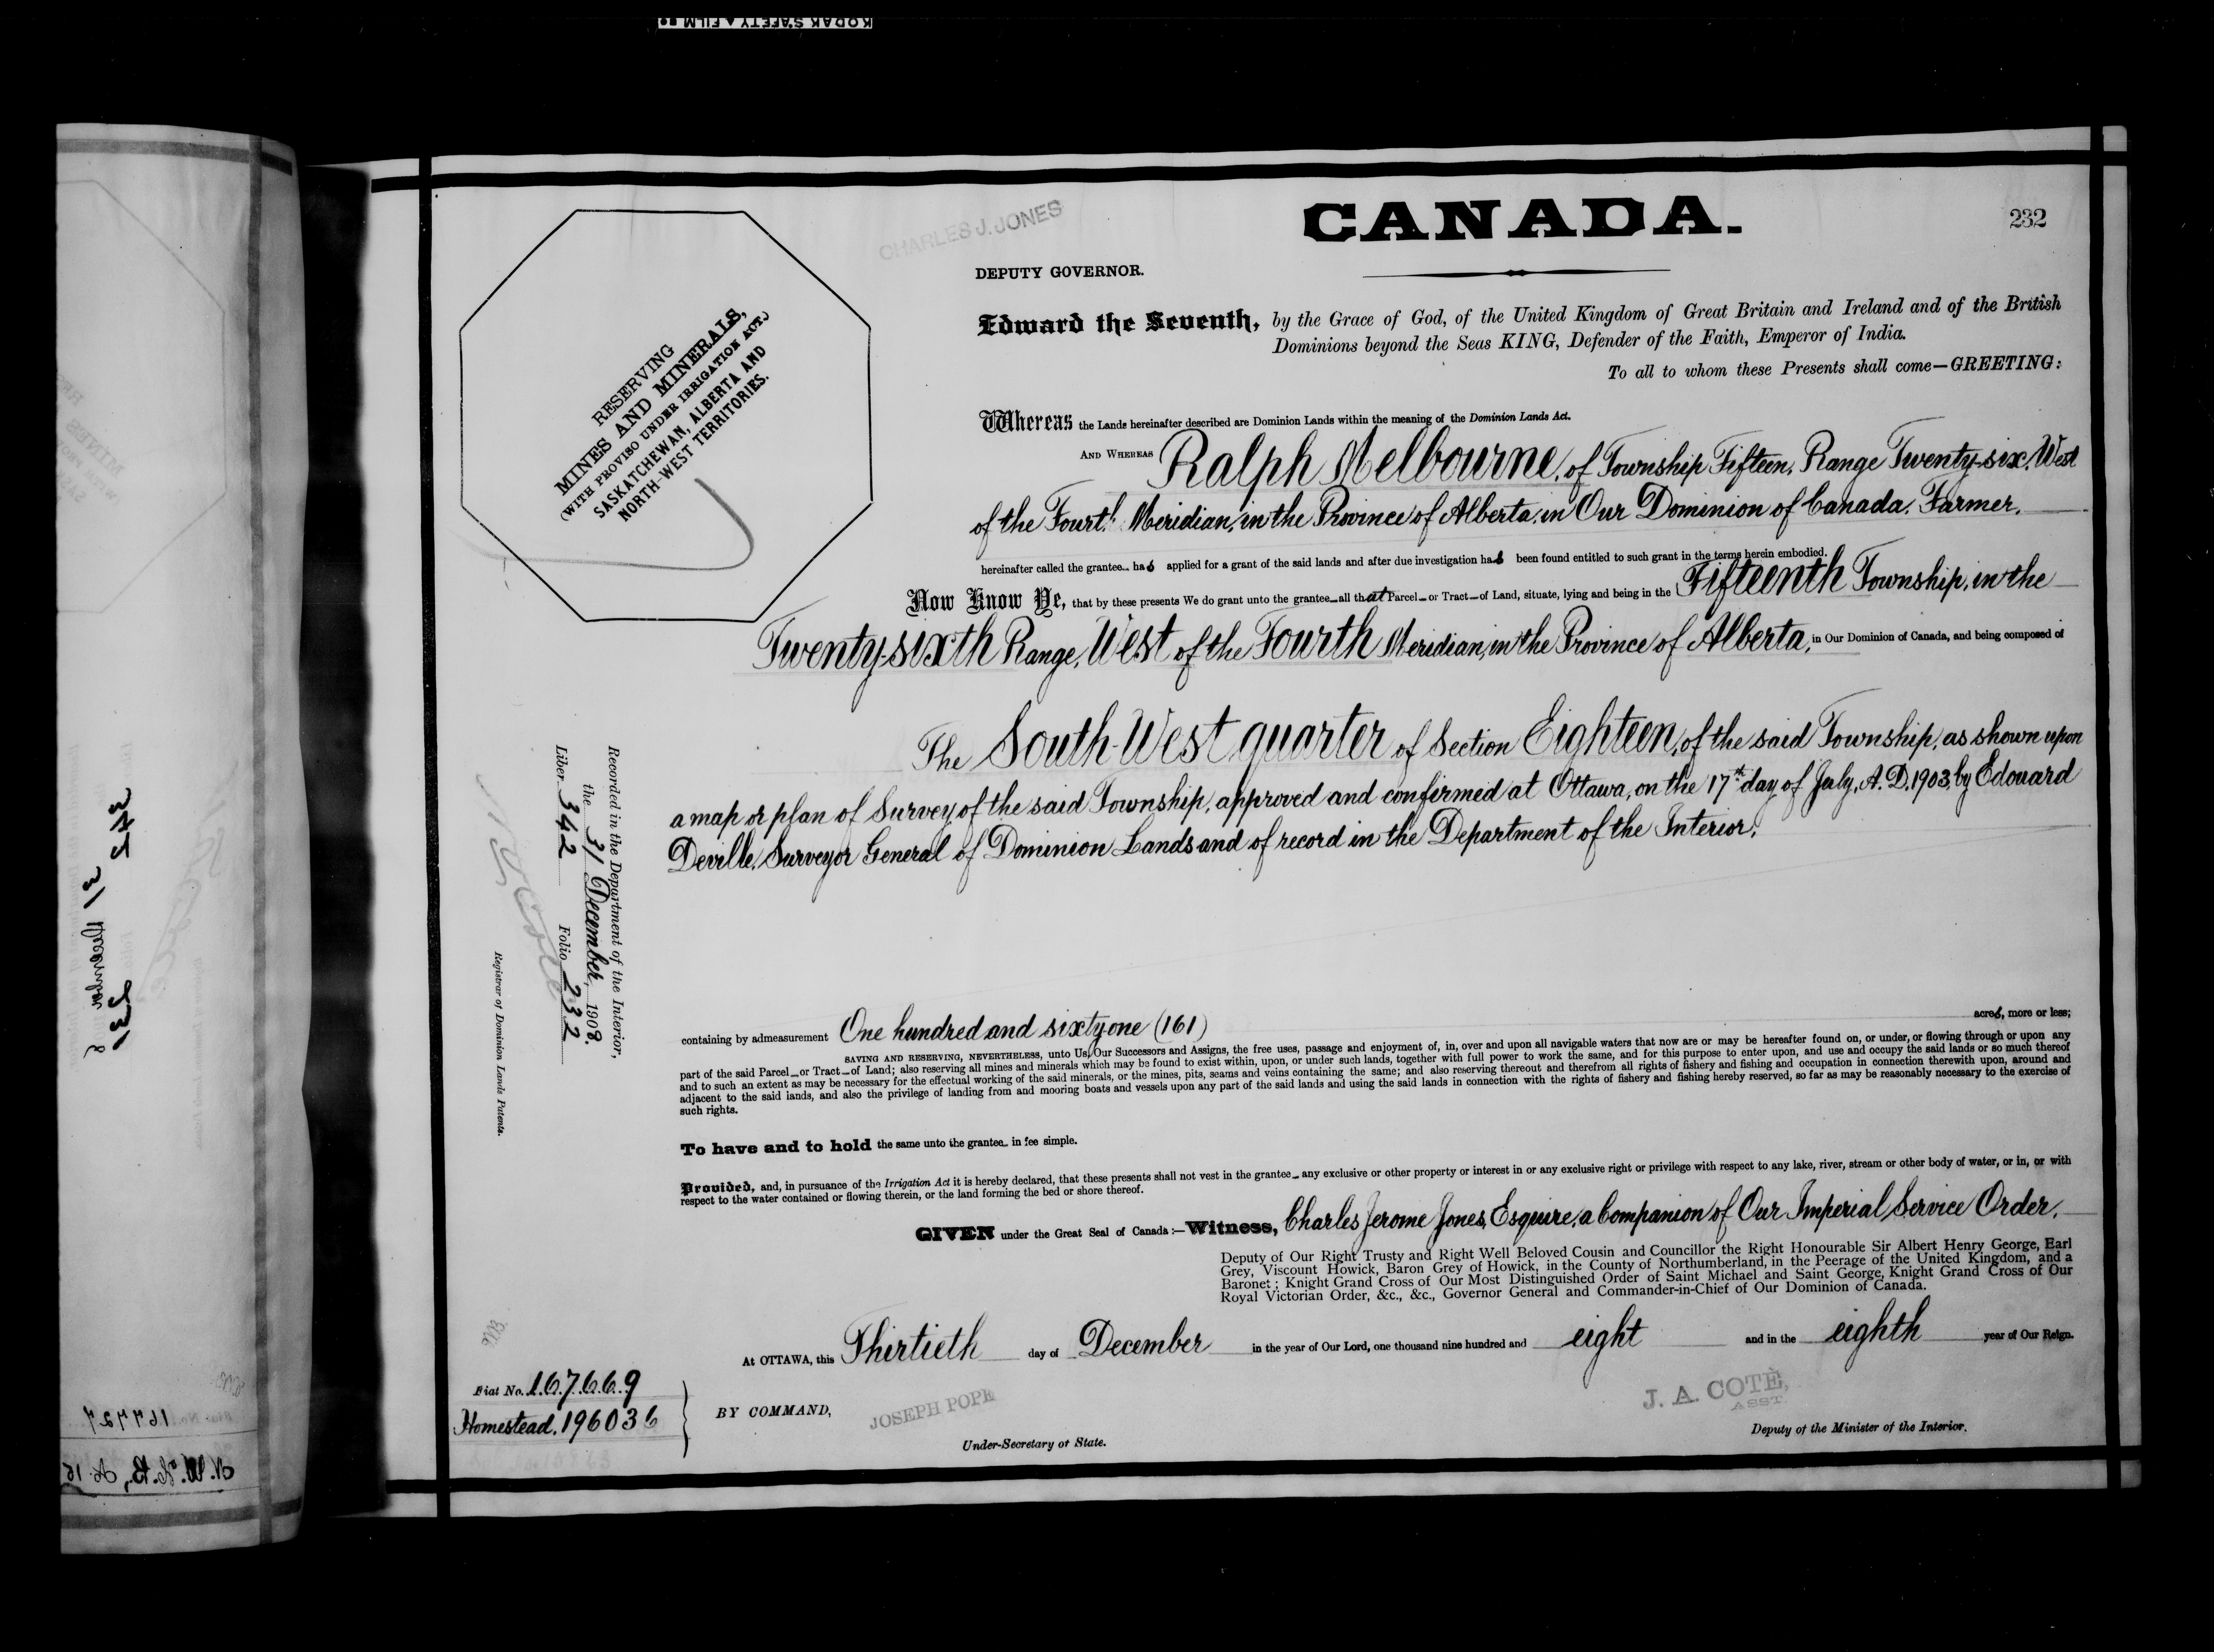 KODAK SAFETY FILM
CHARLES J. JONES
CANADA.
232
DEPUTY GOVERNOR.
Edward the Seventh, by the Grace of God, of the United Kingdom of Great Britain and Ireland and of the British
Dominions beyond the Seas KING, Defender of the Faith, Emperor of India.
To all to whom these Presents shall come—GREETING:
RESERVING
MINES AND MINERALS,
(WITH PROVISO UNDER IRRIGATION ACT.)
SASKATCHEWAN, ALBERTA AND
NORTH-WEST TERRITORIES.
Whereas the Lands hereinafter described are Dominion Lands within the meaning of the Dominion Lands Act.
AND WHEREAS Ralph Melbourne, of Township Fifteen, Range Twenty-six, West
of the Fourth Meridian, in the Province of Alberta, in Our Dominion of Canada, Farmer,
hereinafter called the grantee has applied for a grant of the said lands and after due investigation has been found entitled to such grant in the terms herein embodied.
Now Know Ye, that by these presents We do grant unto the grantee all that Parcel or Tract of Land, situate, lying and being in the Fifteenth Township, in the
Twenty-sixth Range, West of the Fourth Meridian, in the Province of Alberta, in Our Dominion of Canada, and being composed of
The South-West quarter of Section Eighteen, of the said Township, as shown upon
a map or plan of Survey of the said Township, approved and confirmed at Ottawa, on the 17th day of July, A.D. 1903, by Edouard
Deville, Surveyor General of Dominion Lands and of record in the Department of the Interior,
Recorded in the Department of the Interior,
the 31 December, 1908.
Liber 342 Folio 232
Registrar of Dominion Lands Patents.
containing by admeasurement One hundred and sixty one (161) acres, more or less;
SAVING AND RESERVING, NEVERTHELESS, unto Us, Our Successors and Assigns, the free uses, passage and enjoyment of, in, over and upon all navigable waters that now are or may be hereafter found on, or under, or flowing through or upon any
part of the said Parcel or Tract of Land; also reserving all mines and minerals which may be found to exist within, upon, or under such lands, together with full power to work the same, and for this purpose to enter upon, and use and occupy the said lands or so much thereof
and to such an extent as may be necessary for the effectual working of the said minerals, or the mines, pits, seams and veins containing the same; and also reserving thereout and therefrom all rights of fishery and fishing and occupation in connection therewith upon, around and
adjacent to the said lands, and also the privilege of landing from and mooring boats and vessels upon any part of the said lands and using the said lands in connection with the rights of fishery and fishing hereby reserved, so far as may be reasonably necessary to the exercise of
such rights.
To have and to hold the same unto the grantee in fee simple.
Provided, and, in pursuance of the Irrigation Act it is hereby declared, that these presents shall not vest in the grantee any exclusive or other property or interest in or any exclusive right or privilege with respect to any lake, river, stream or other body of water, or in, or with
respect to the water contained or flowing therein, or the land forming the bed or shore thereof.
GIVEN under the Great Seal of Canada:—Witness, Charles Jerome Jones, Esquire, a Companion of Our Imperial Service Order,
Deputy of Our Right Trusty and Right Well Beloved Cousin and Councillor the Right Honourable Sir Albert Henry George, Earl
Grey, Viscount Howick, Baron Grey of Howick, in the County of Northumberland, in the Peerage of the United Kingdom, and a
Baronet; Knight Grand Cross of Our Most Distinguished Order of Saint Michael and Saint George, Knight Grand Cross of Our
Royal Victorian Order, &c., &c., Governor General and Commander-in-Chief of Our Dominion of Canada.
At OTTAWA, this Thirtieth day of December in the year of Our Lord, one thousand nine hundred and eight and in the eighth year of Our Reign.
Fiat No. 167669
Homestead. 196036
BY COMMAND,
JOSEPH POPE
Under-Secretary of State.
J. A. COTÈ,
ASST.
Deputy of the Minister of the Interior.